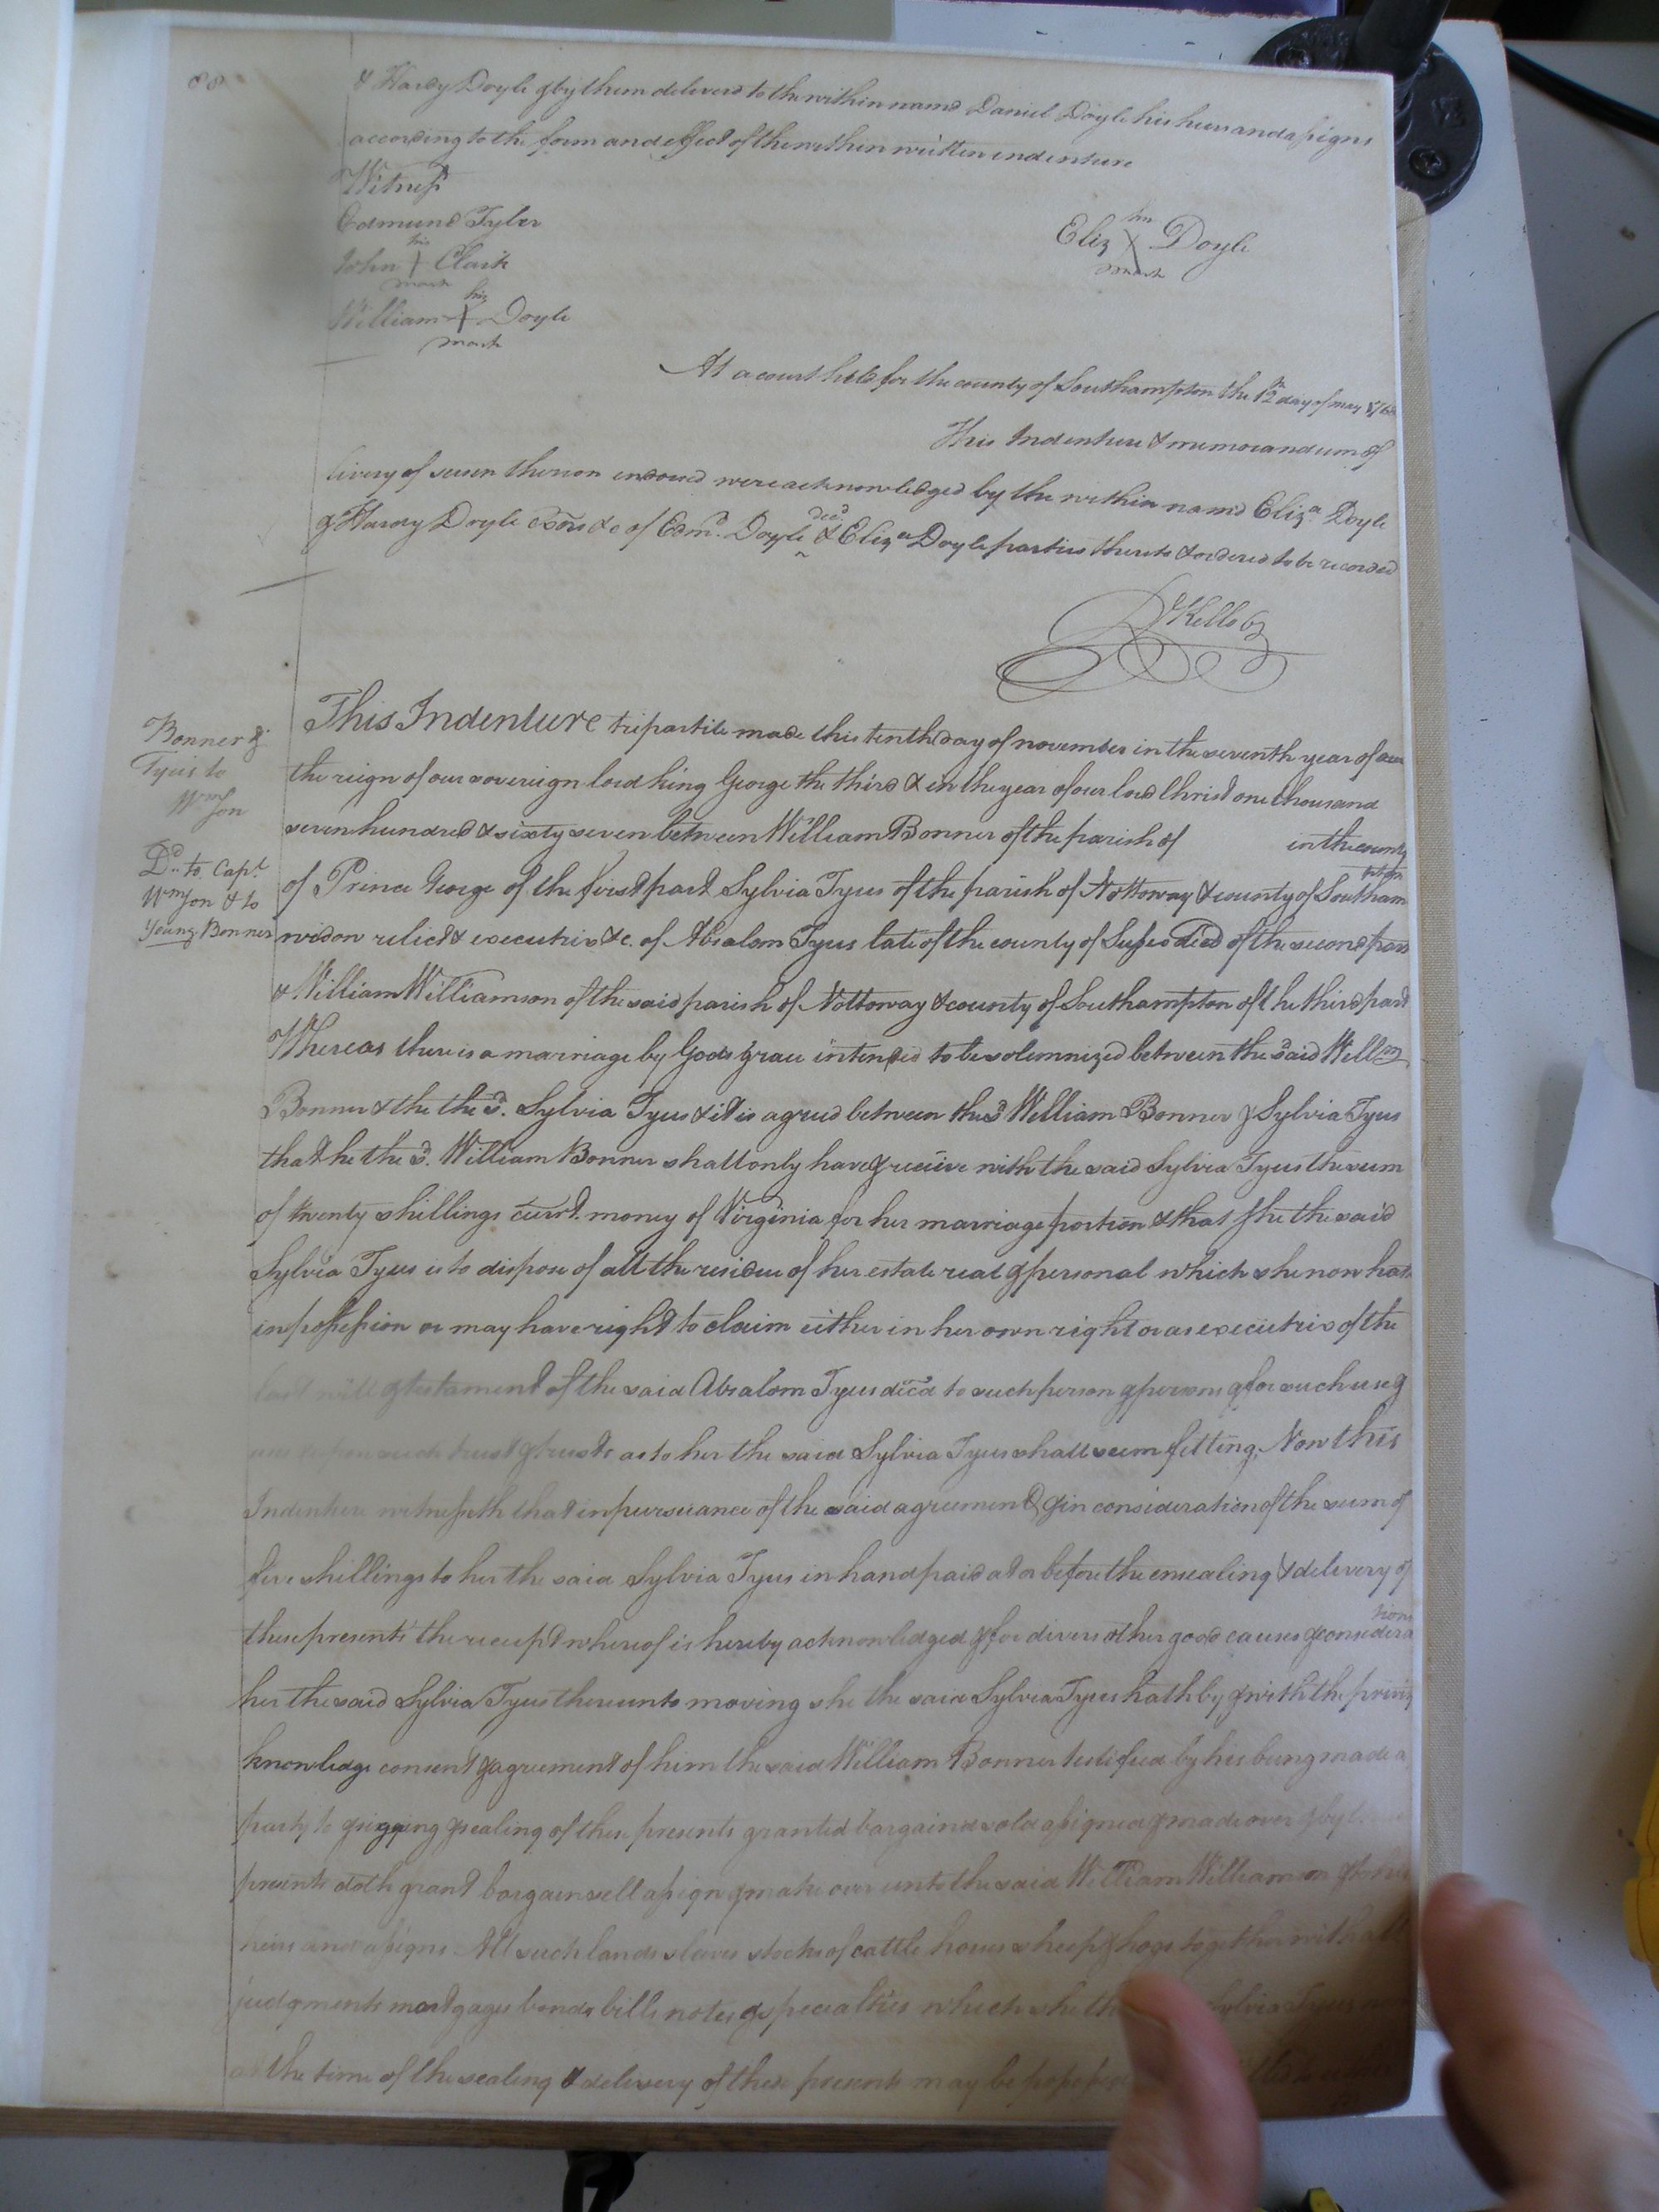 88
& Hardy Doyle & by them deliverd to the within namd Daniel Doyle his heirs and assigns
according to the form and effect of the within written indenture
Witness
Edmund Tyler
his
John Clark
mark
his
William Doyle
mark
her
Eliz X Doyle
mark
At a court held for the county of Southampton the 12th day of may 1768
This Indenture & memorandum of
livery of seisen thereon endorsed were acknowledged by the within namd Eliza Doyle
& Hardy Doyle Exōrs &c of Edmd. Doyle decd & Eliza Doyle parties thereto & ordered to be recorded
R Kello
This Indenture tripartite made this tenth day of november in the seventh year of our
the reign of our sovereign lord king George the third & in the year of our lord Christ one thousand
seven hundred & sixty seven between William Bonner of the parish of in the county
of Prince George of the first part Sylvia Tyus of the parish of Nottoway & county of Southampton
widow relict & executrix &c. of Absalom Tyus late of the county of Sussex decd of the second part
& William Williamson of the said parish of Nottoway & county of Southampton of the third part
Whereas there is a marriage by Gods grace intended to be solemnized between the said Willm
Bonner & the the sd. Sylvia Tyus & it is agreed between the sd William Bonner & Sylvia Tyus
that he the sd. William Bonner shall only have & receive with the said Sylvia Tyus the sum
of twenty shillings currt. money of Virginia for her marriage portion & that she the said
Sylvia Tyus is to dispose of all the residue of her estate real & personal which she now hath
in possession or may have right to claim either in her own right or as executrix of the
last will & testament of the said Absalom Tyus decd to such person & persons & for such use &
uses upon such trust & trusts as to her the said Sylvia Tyus shall seem fitting. Now this
Indenture witnesseth that in pursuance of the said agreement & in consideration of the sum of
five shillings to her the said Sylvia Tyus in hand paid at or before the ensealing & delivery of
these presents the receipt whereof is hereby acknowledged & for divers other good causes & considerations
her the said Sylvia Tyus thereunto moving she the said Sylvia Tyus hath by & with the privity
knowledge consent & agreement of him the said William Bonner testified by his being made a
party to & signing & sealing of these presents granted bargaind sold assigned & made over & by
presents doth grant bargain sell assign & make over unto the said William Williamson & to his
heirs and assigns All such lands slaves stocks of cattle horses sheep & hogs together with all
judgments mortgages bonds bills notes & specialties which she the Sylvia Tyus
at the time of the sealing & delivery of these presents may be
Bonner &
Tyus to
Wmson
Do. to Capt.
Wmson & to
Young Bonner